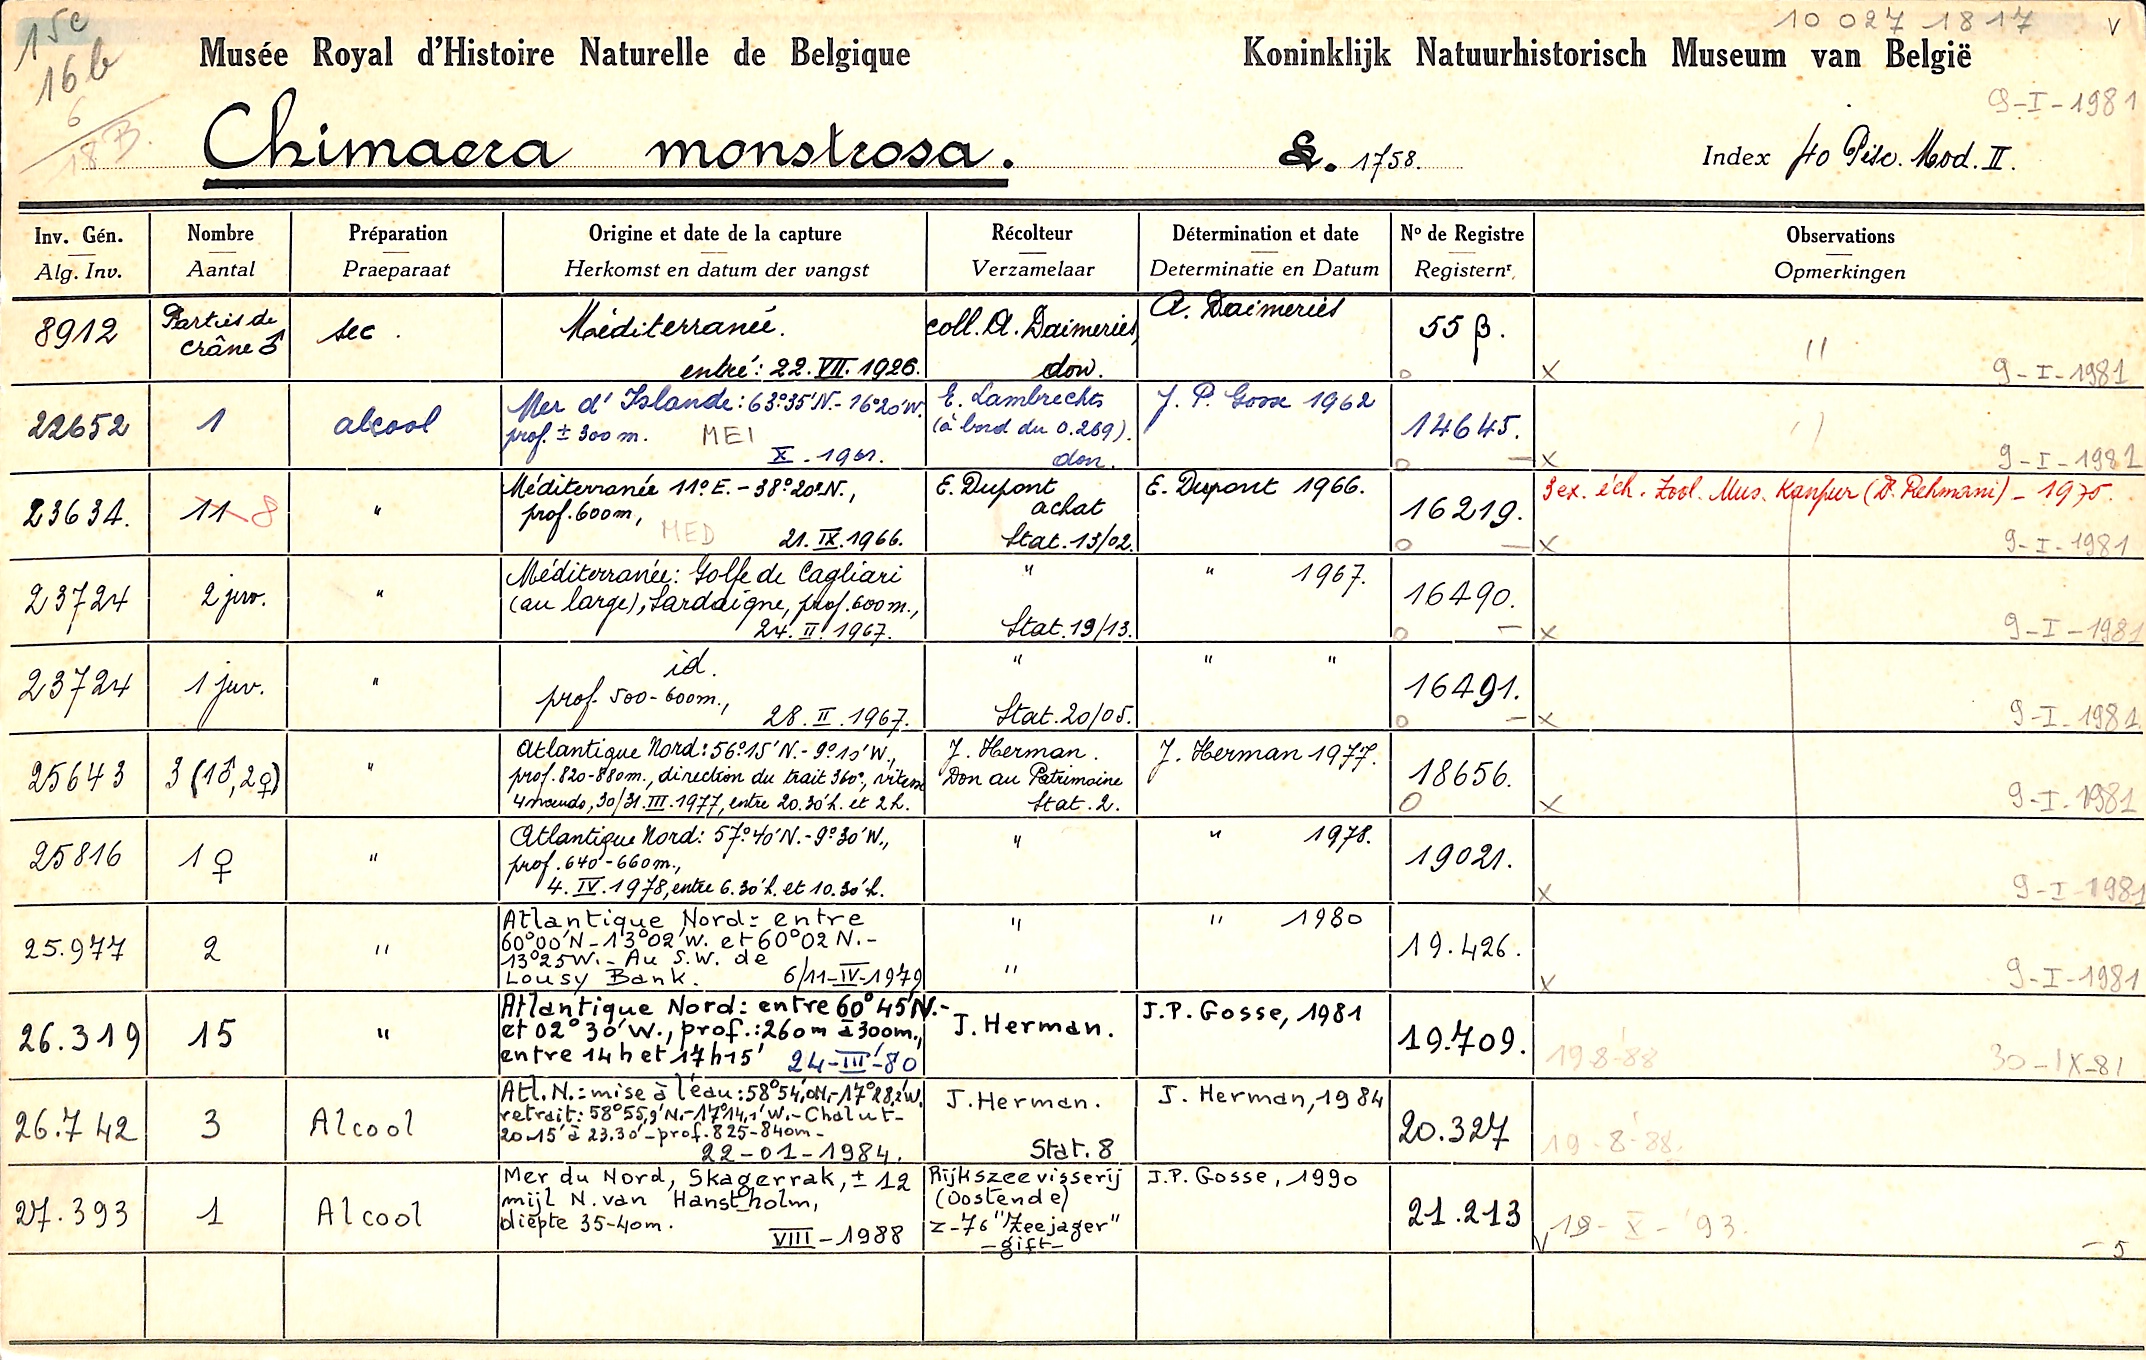 15c
10 027 1817 V
16b
Musée Royal d'Histoire Naturelle de Belgique
Koninklijk Natuurhistorisch Museum van België
9-I-1981
6/18 B.
Chimaera monstrosa.
L. 1758.
Index 40 Pisc. Mod. II.
Inv. Gén. Nombre Préparation Origine et date de la capture Récolteur Détermination et date Nº de Registre Observations
Alg. Inv. Aantal Praeparaat Herkomst en datum der vangst Verzamelaar Determinatie en Datum Registernr. Opmerkingen
8912
Parties de
crâne ♂
sec.
Méditerranée.
entré: 22.VII.1926.
coll. A. Daimeries,
don.
A. Daimeries
55 β.
o
x
"
9-I-1981
22652
1
alcool
Mer d'Islande: 63°35'N.-16°20'W.
prof. ± 300 m. MEI
X.1961.
E. Lambrechts
(à bord du O.269).
don.
J. P. Gosse 1962
14645.
o –
x
"
9-I-1981
23634.
11 8
"
Méditerranée 11°E.-38°20'N.,
prof. 600m,
MED
21.IX.1966.
E. Dupont
achat
Stat. 13/02.
E. Dupont 1966.
16219.
o –
3 ex. éch. Zool. Mus. Kanpur (D. Rehmani) - 1975.
x
9-I-1981
23724
2 juv.
"
Méditerranée: Golfe de Cagliari
(au large), Sardaigne, prof. 600m.,
24.II.1967.
"
Stat. 19/13.
" 1967.
16490.
o –
x
9-I-1981
23724
1 juv.
"
id.
prof. 500-600m.,
28.II.1967.
"
Stat. 20/05.
" "
16491.
o –
x
9-I-1981
25643
3 (1♂, 2♀)
"
Atlantique Nord: 56°15'N.-9°10'W.,
prof. 820-880m., direction du trait 360°, vitesse
4 nœuds, 30/31.III.1977, entre 20.30'h. et 2h.
J. Herman.
Don au Patrimoine
Stat. 2.
J. Herman 1977.
18656.
o
x
9-I-1981
25816
1 ♀
"
Atlantique Nord: 57°40'N.-9°30'W.,
prof. 640-660m.,
4.IV.1978, entre 6.30'h. et 10.30'h.
"
" 1978.
19021.
x
9-I-1981
25.977
2
"
Atlantique Nord: entre
60°00'N-13°02'W. et 60°02 N.-
13°25W.- Au S.W. de
Lousy Bank. 6/11-IV-1979
"
"
" 1980
19.426.
x
9-I-1981
26.319
15
"
Atlantique Nord: entre 60°45'N.-
et 02°30'W., prof.: 260m à 300m.,
entre 14h et 17h15' 24-III-80
J. Herman.
J.P. Gosse, 1981
19.709.
19-8-88
30-IX-81
26.742
3
Alcool
Atl. N.: mise à l'eau: 58°54,0N.-17°28,2'W.
retrait: 58°55,9'N.-17°14,1'W.- Chalut-
20.15' à 23.30'-prof. 825-840m-
22-01-1984.
J. Herman.
Stat. 8
J. Herman, 1984
20.327
19-8-88.
27.393
1
Alcool
Mer du Nord, Skagerrak, ± 12
mijl N. van Hanstholm,
diepte 35-40m.
VIII-1988
Rijkszeevisserij
(Oostende)
Z-76 "Zeejager"
-gift-
J.P. Gosse, 1990
21.213
V 18-X-'93.
-5